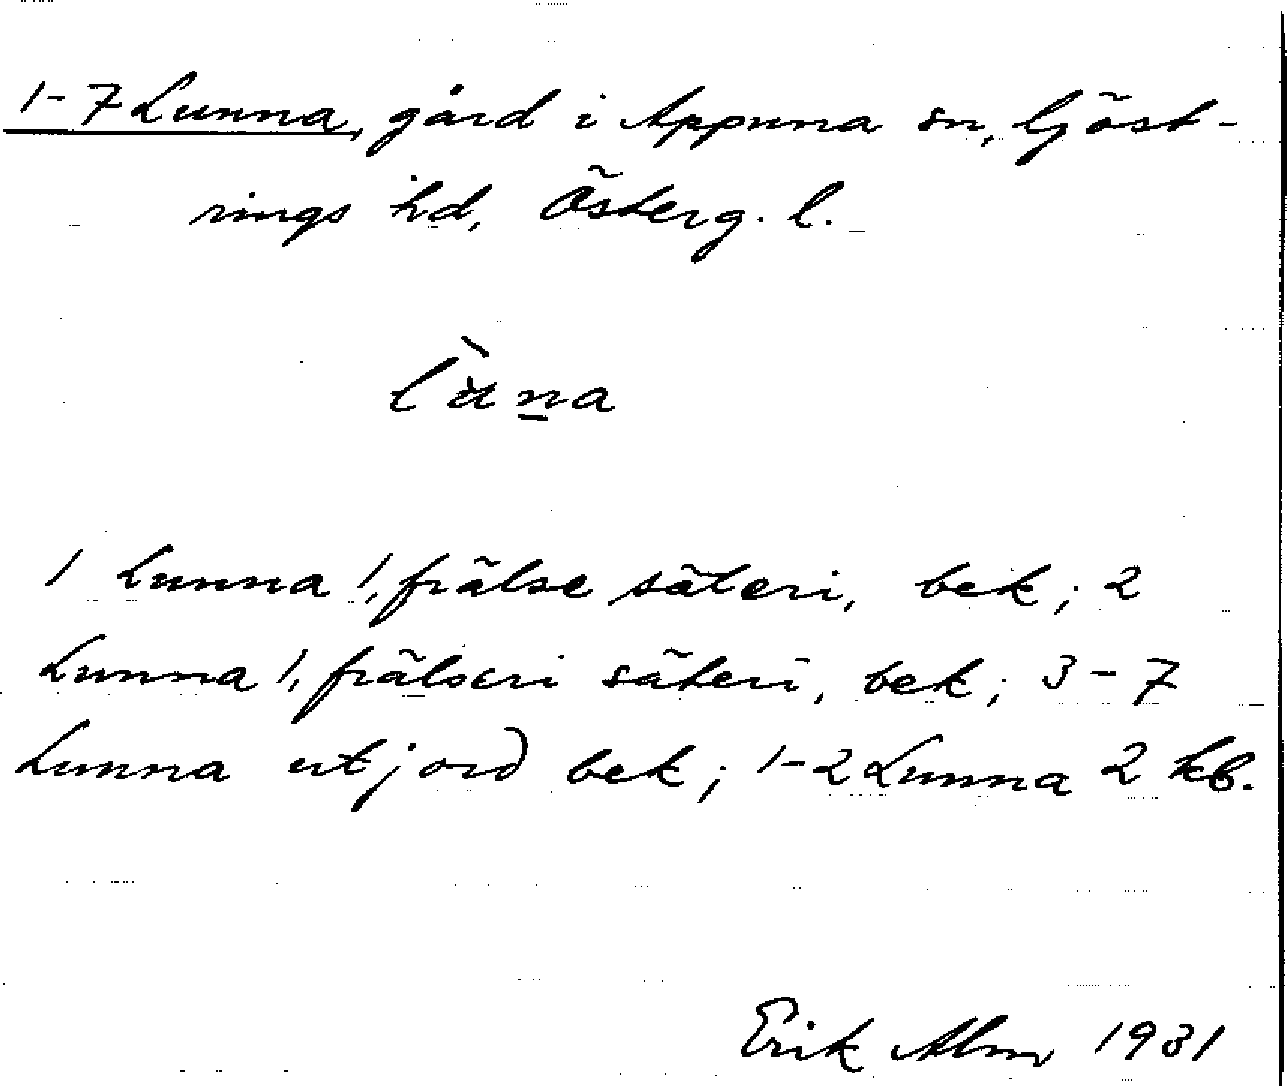 1-7 Lunna, gård i Appuna sn, Göst-
rings hd, Österg. l.
1 Lunna 1, frälse säteri, bek; 2
Lunna 1, frälseri säteri, bek; 3-7
Lunna utjord bek; 1-2 Lunna 2 kb.
Erik Alm 1931